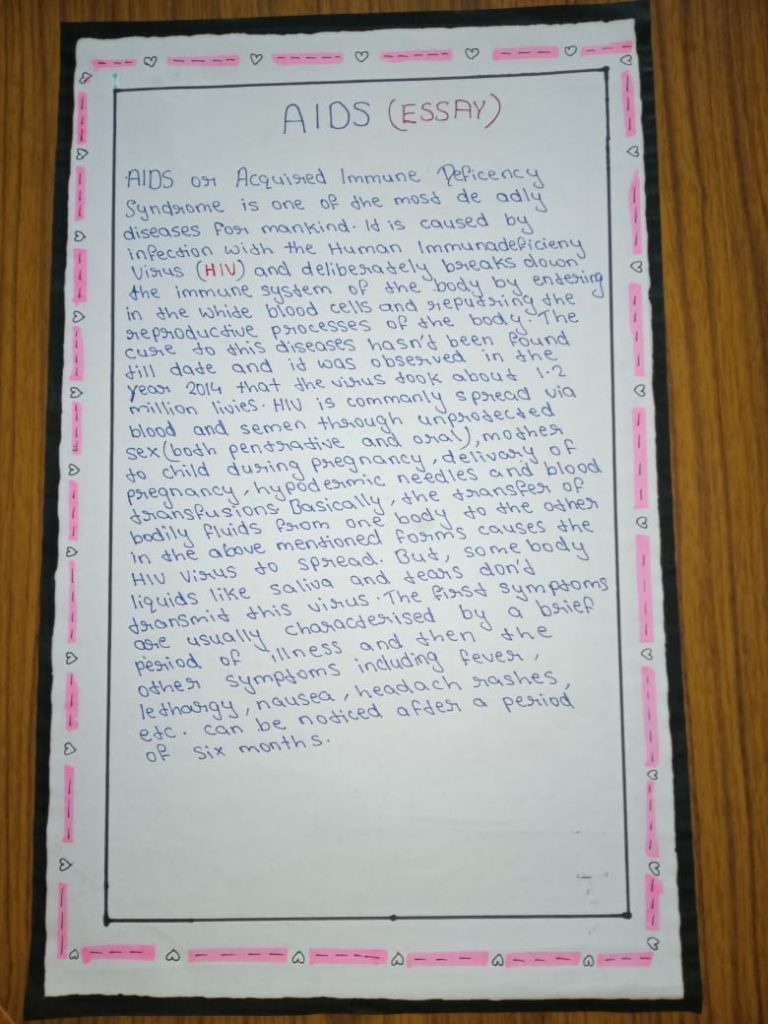 AIDS (ESSAY)
AIDS or Acquired Immune Deficency
Syndrome is one of the most de adly
diseases for mankind. It is caused by
infection with the Human Immunadeficieny
Virus (HIV) and deliberately breaks down
the immune system of the body by entering
in the white blood cells and reputring the
reproductive processes of the body. The
cure to this diseases hasn't been found
till date and it was observed in the
year 2014 that the virus took about 1.2
million livies. HIV is commanly spread via
blood and semen through unprotected
sex (both pentrative and oral), mother
to child during pregnancy, delivary of
pregnancy, hypodermic needles and blood
transfusions. Basically, the transfer of
bodily fluids from one body to the other
in the above mentioned forms causes the
HIV Virus to spread. But, some body
liquids like saliva and tears don't
transmit this virus. The first symptoms
are usually characterised by a brief
period of illness and then the
other symptoms including fever,
lethargy, nausea, headach rashes,
etc. can be noticed after a period
of six months.